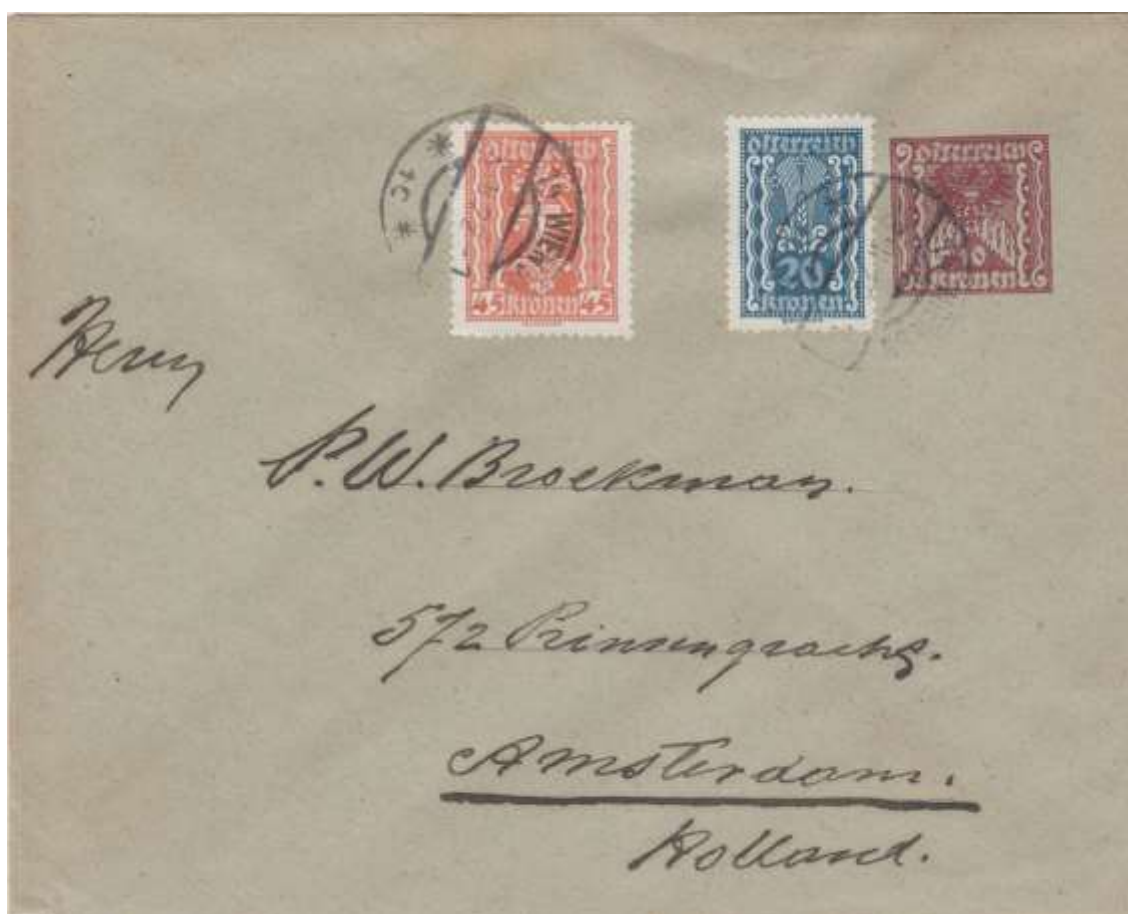 Österreich
45 Kronen 45
WIEN
Österreich
20
Kronen
Österreich
Kronen
Herrn
P. W. Broekman.
572 Prinsengracht.
Amsterdam.
Holland.